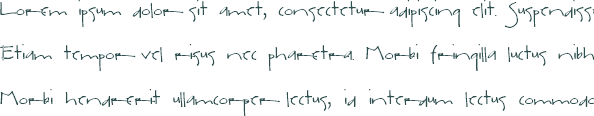 Lorem ipsum dolor sit amet, consectetur adipiscing elit. Suspendiss
Etiam tempor vel risus nec pharetra. Morbi fringilla luctus nibh
Morbi hendrerit ullamcorper lectus, id interdum lectus commodo